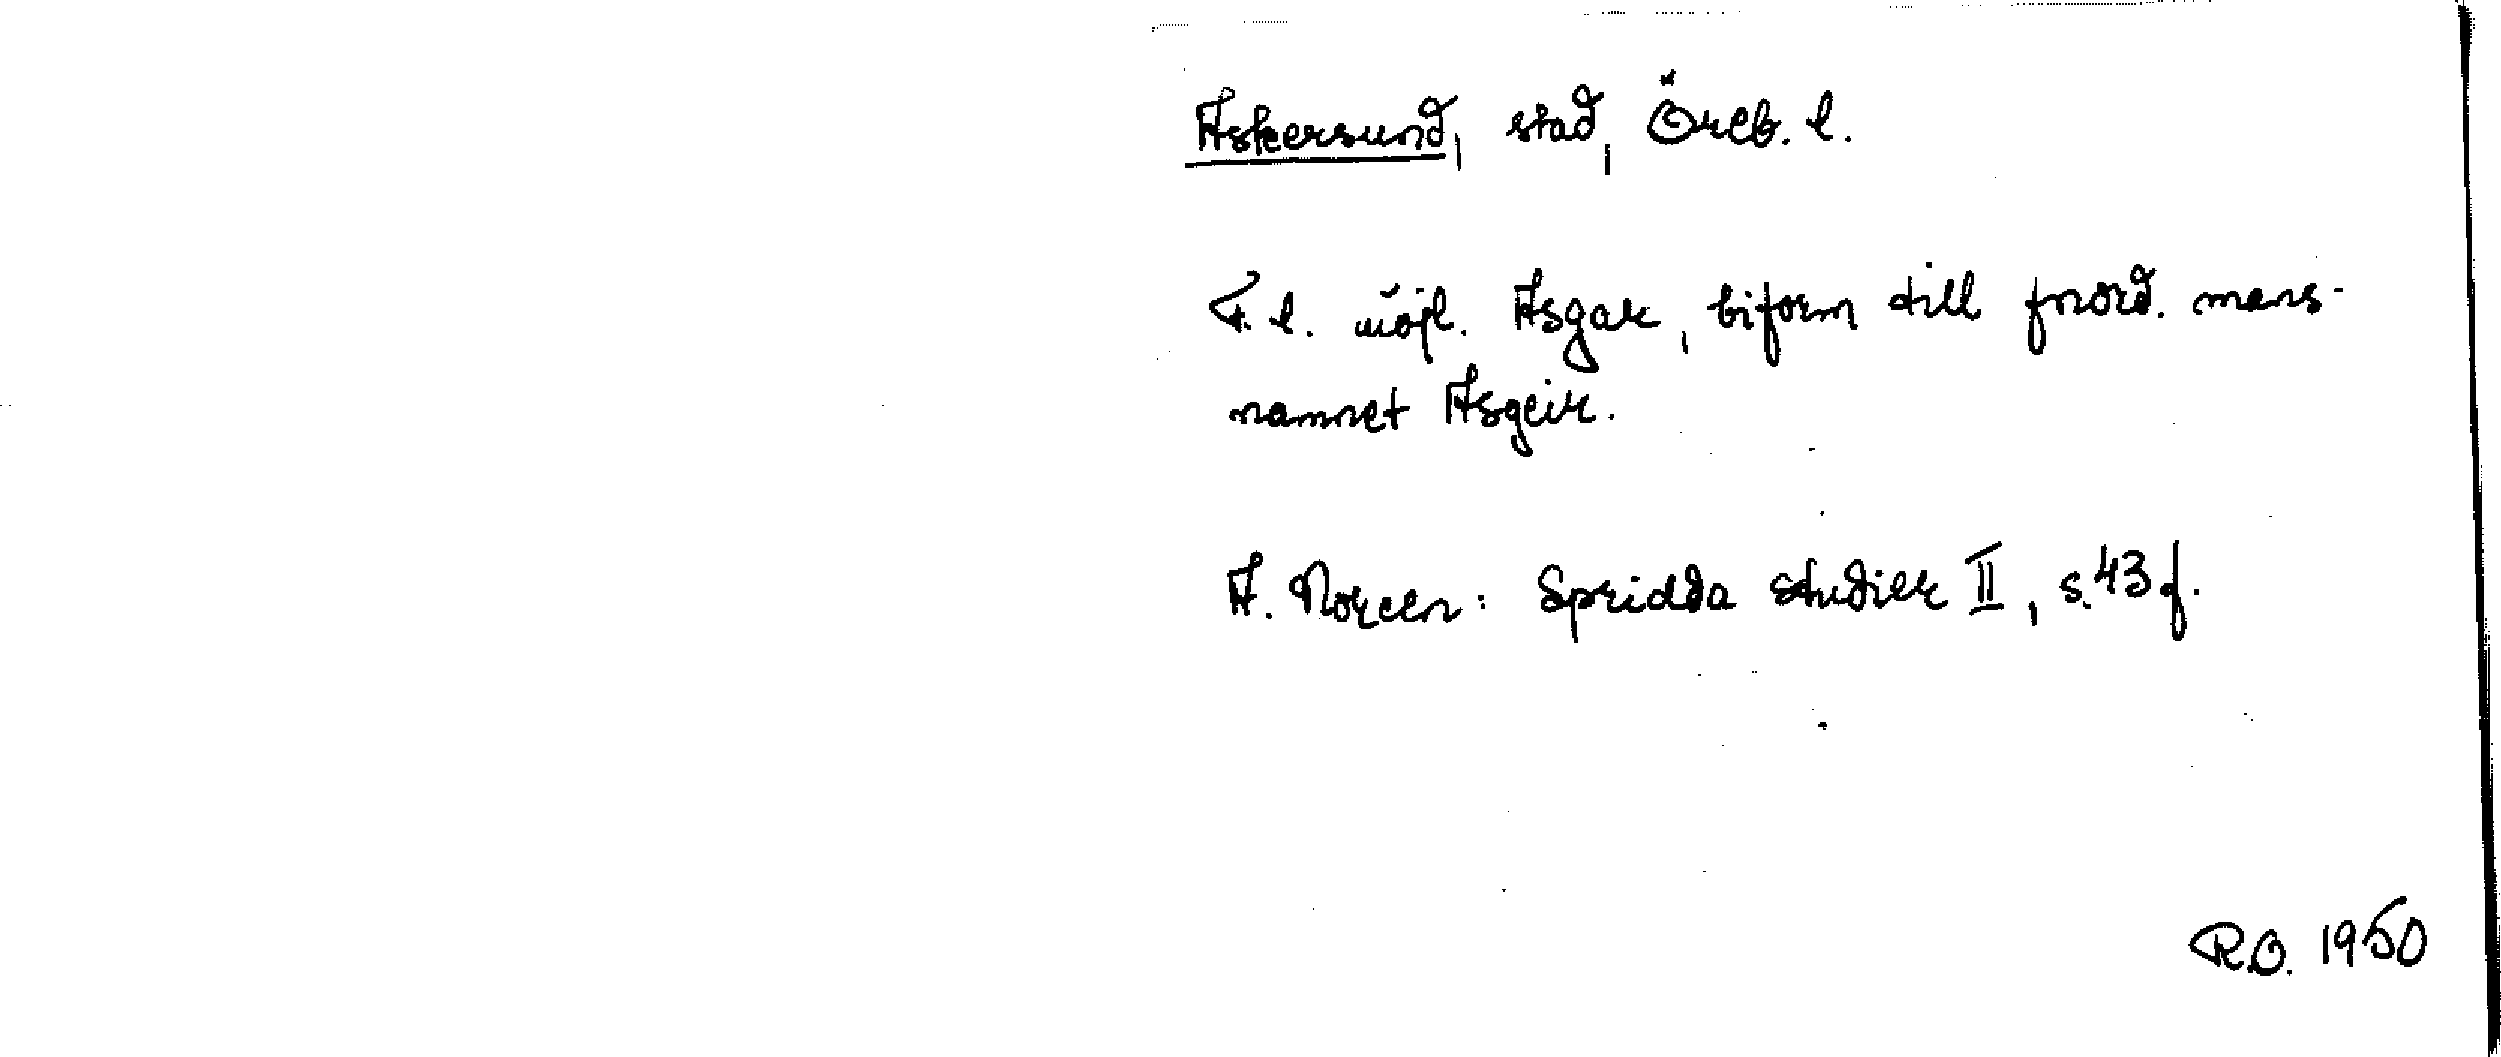 Askersund, stad, Öreb. l.
F. l. möjl. Asgar, biform till fnord. mans-
namnet Asgeir.
A. Noreen: Spridda studier II, s. 43 f.
R.O. 1950